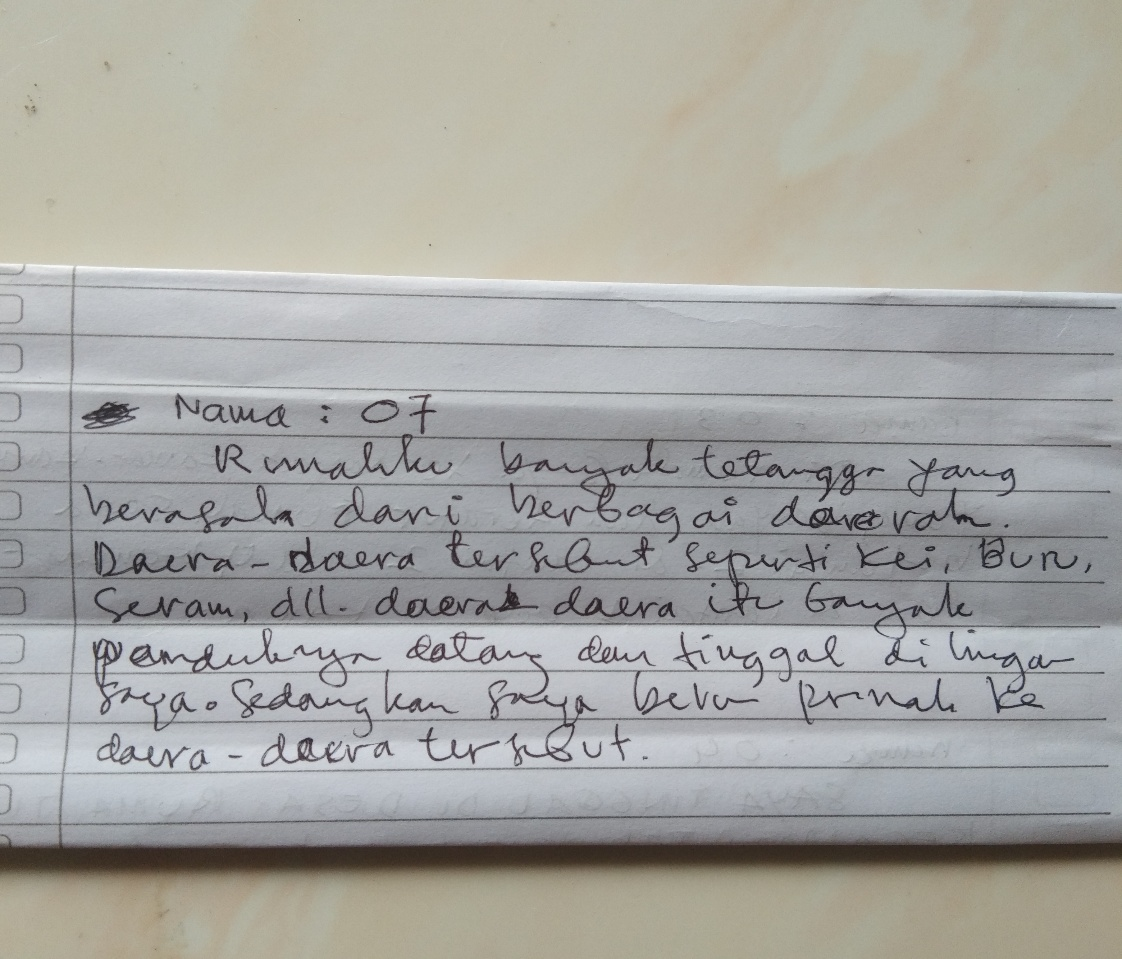 Nama : 07
Rumahku banyak tetangga yang
berasala dari berbagai daerah.
Daera-daera tersebut seperti Kei, Buru,
Seram, dll. daera daera itu banyak
penduknya datang dan tinggal di lingan
saya. Sedangkan saya belum pernah ke
daera-daera tersebut.